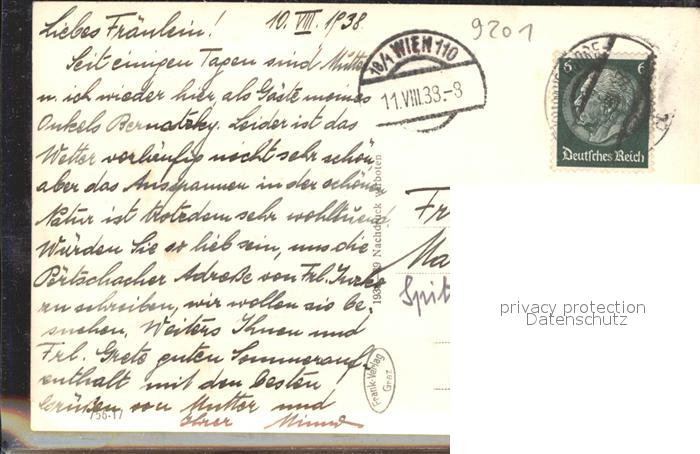 10. VIII. 1938.
9201
Liebes Fräulein!
Seit einigen Tagen sind Mutter
u. ich wieder hier als Gäste meines
Onkels Bernatzky. Leider ist das
Wetter vorläufig nicht sehr schön
aber das Ausspannen in der schönen
Natur ist trotzdem sehr wohltuend
Würden Sie so lieb sein, uns die
Pörtschacher Adreße von Frl.
zu schreiben, wir wollen sie be-
suchen. Weiters Ihnen und
Frl. Grete guten Sommerauf-
enthalt mit den besten
Grüßen von Mutter und
Ihrer
18/1 WIEN 110
11.VIII.38.-8
6 6
Deutsches Reich
Nachdruck verboten
Fr
Ma
Spit
Frank-Verlag
Graz
privacy protection
Datenschutz